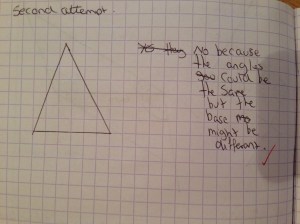 Second attempt.
No because
the angles
could be
the same
but the
base
might be
different.